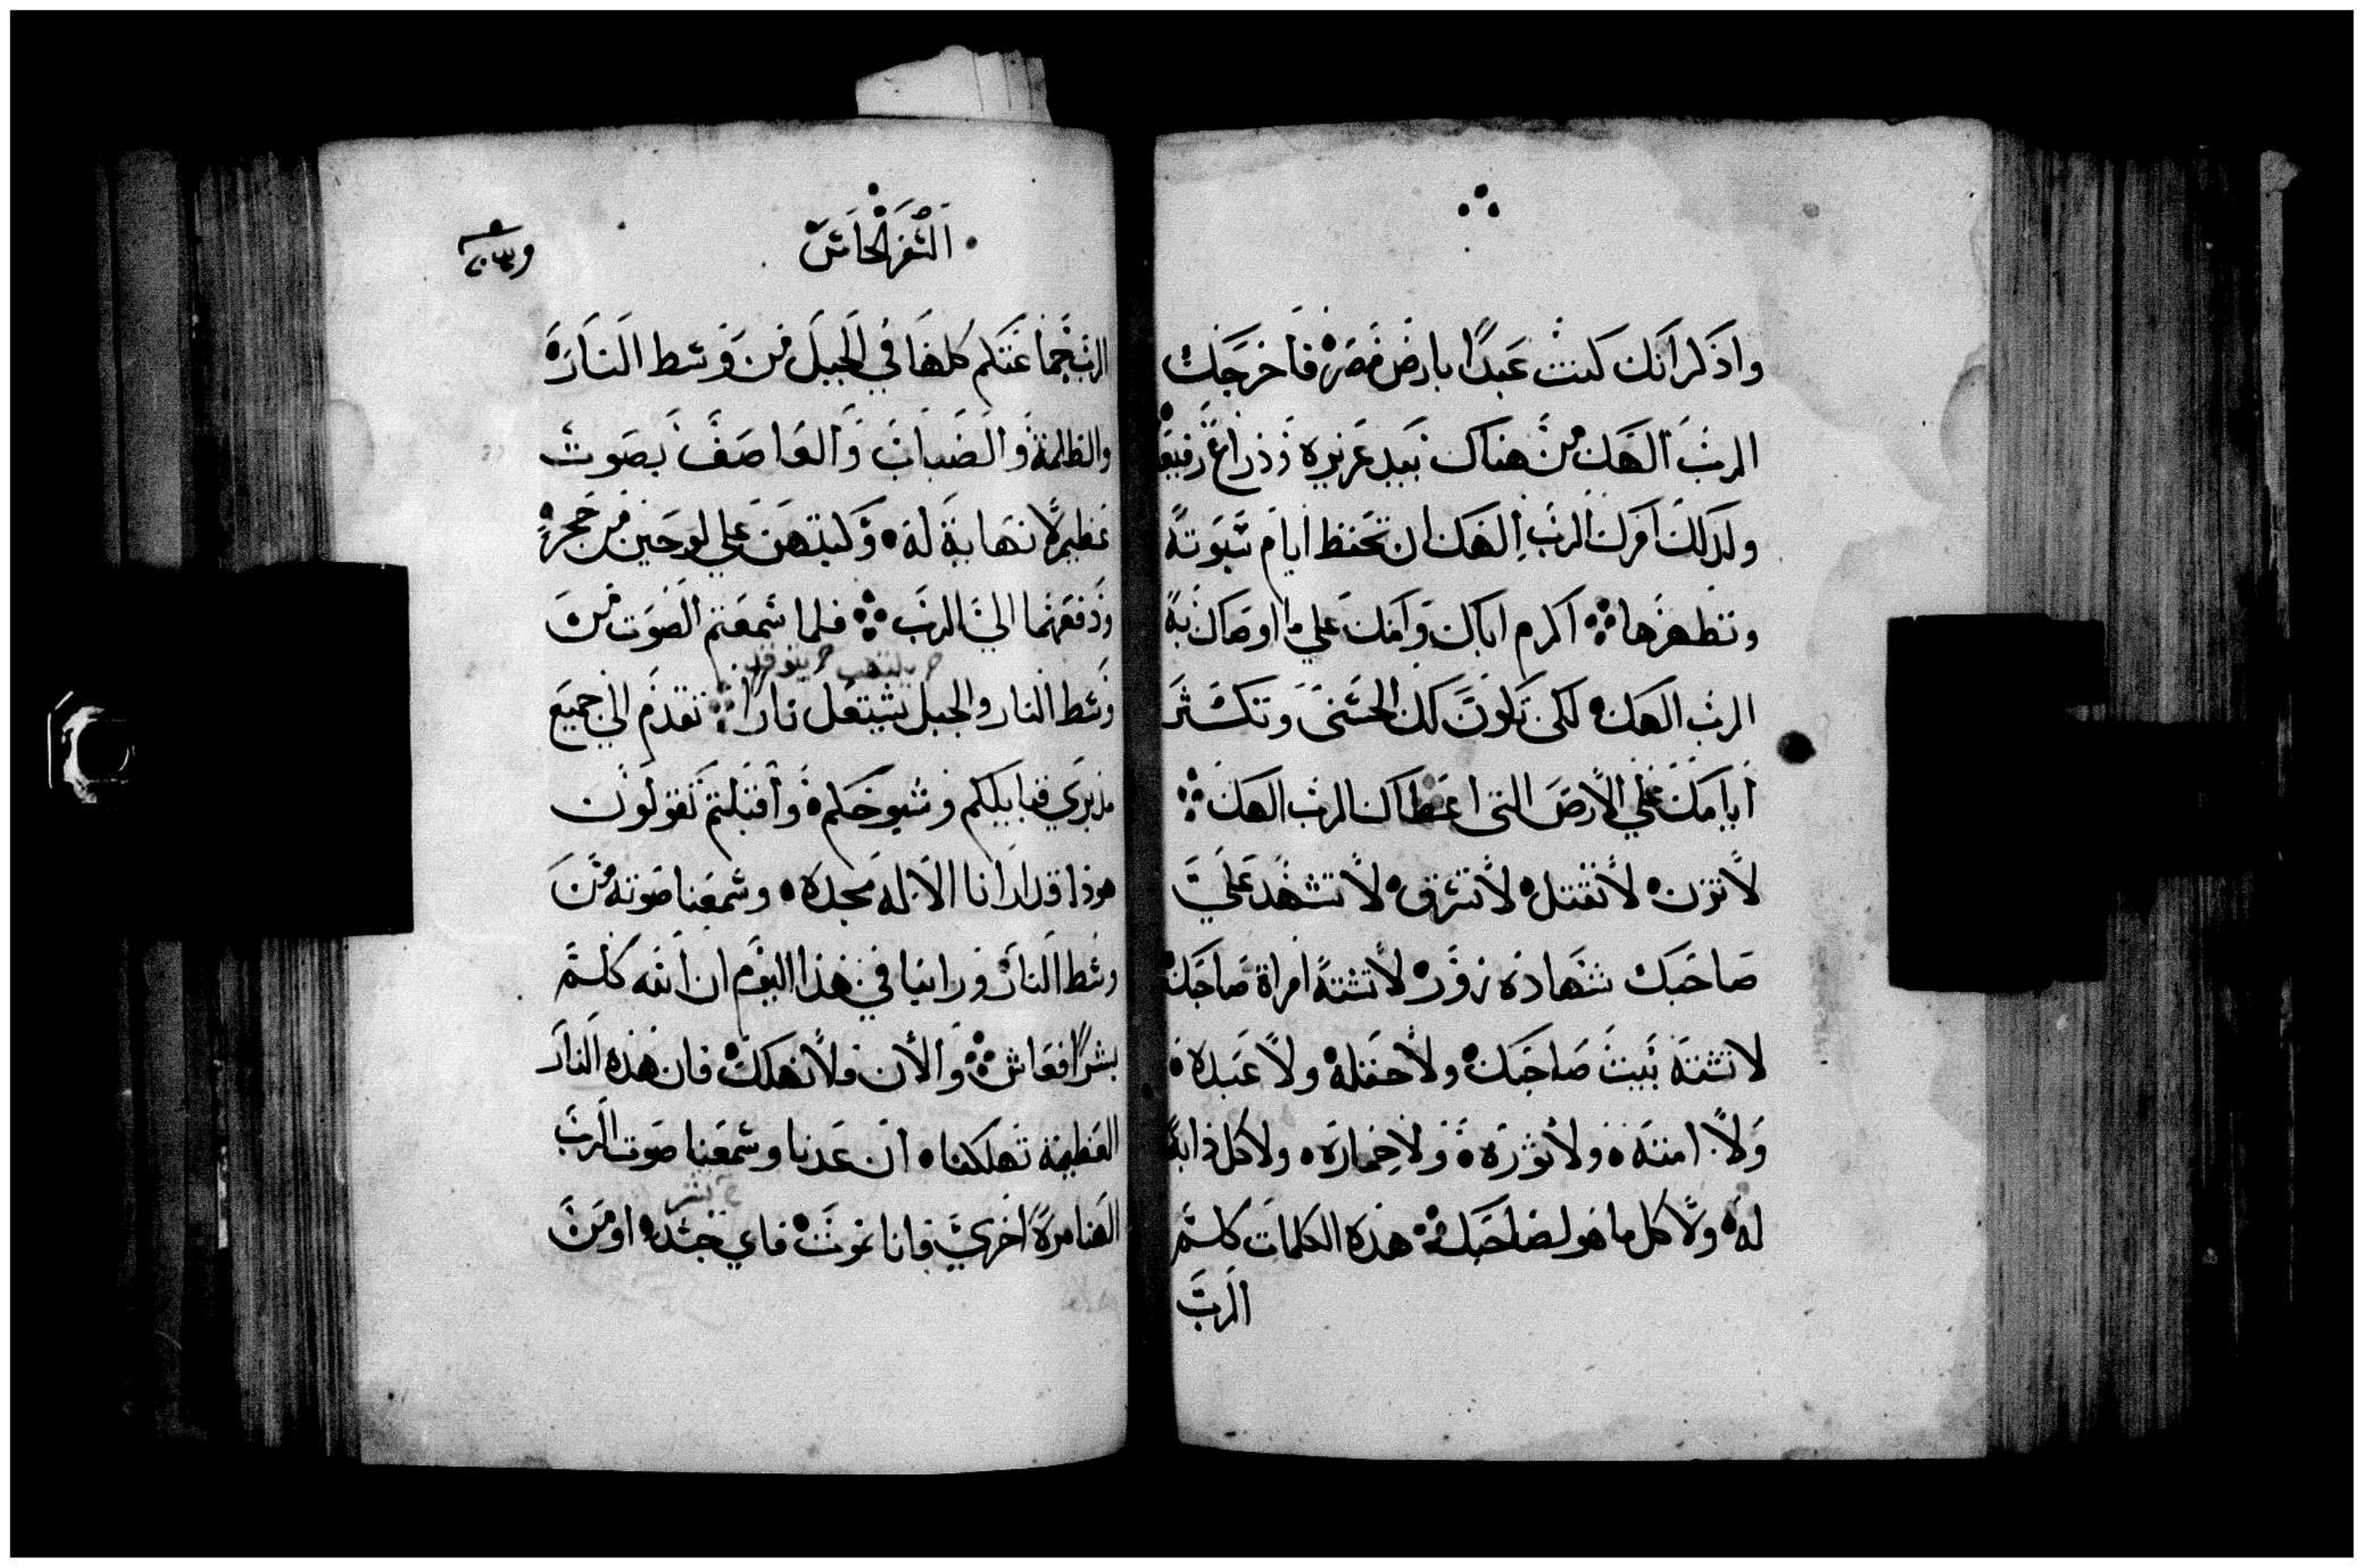 واذكر انك كنت عبدًا بارض مصر فاخرجك
الرب الهك من هناك بيد عزيزه وذراع رفيع
ولذلك امرك الرب الهك ان تحفظ ايام سبوته
وتطهرها اكرم اباك وامك علي ما اوصاك به
الرب الهك لكي تكون لك الحسنى وتكثر
ايامك علي الارض التى اعطاك الرب الهك
لا تزن لا تقتل لا تسرق لا تشهد علي
صاحبك شهاده زور لا تشته امراة صاحبك
لا تشته بيت صاحبك ولا حقله ولا عبده
ولا امته ولا ثوره ولا حماره ولا كل دابة
له ولا كل ما هو لصاحبك هذه الكلمات كلم
الرب
السفر الخامس
الرب جماعتكم كلها في الجبل من وسط النار
والظلمة والضباب والعاصف بصوت
عظيم لا نهاية له وكتبهن علي لوحين من حجر
ودفعهما الي الرب فلما سمعتم الصوت من
وسط النار والجبل يشتعل نارا تقدم الي جميع
مدبري قبايلكم وشيوخكم واقبلتم تقولون
هوذا قد ارانا الاله مجده وسمعنا صوته من
وسط النار وراينا في هذا اليوم ان الله كلم
بشرًا فعاش والأن فلا نهلك فان هذه النار
العظيمة تهلكنا ان عدنا وسمعنا صوت الرب
الهنا مرة اخري فانا نموت فاي جسد او من